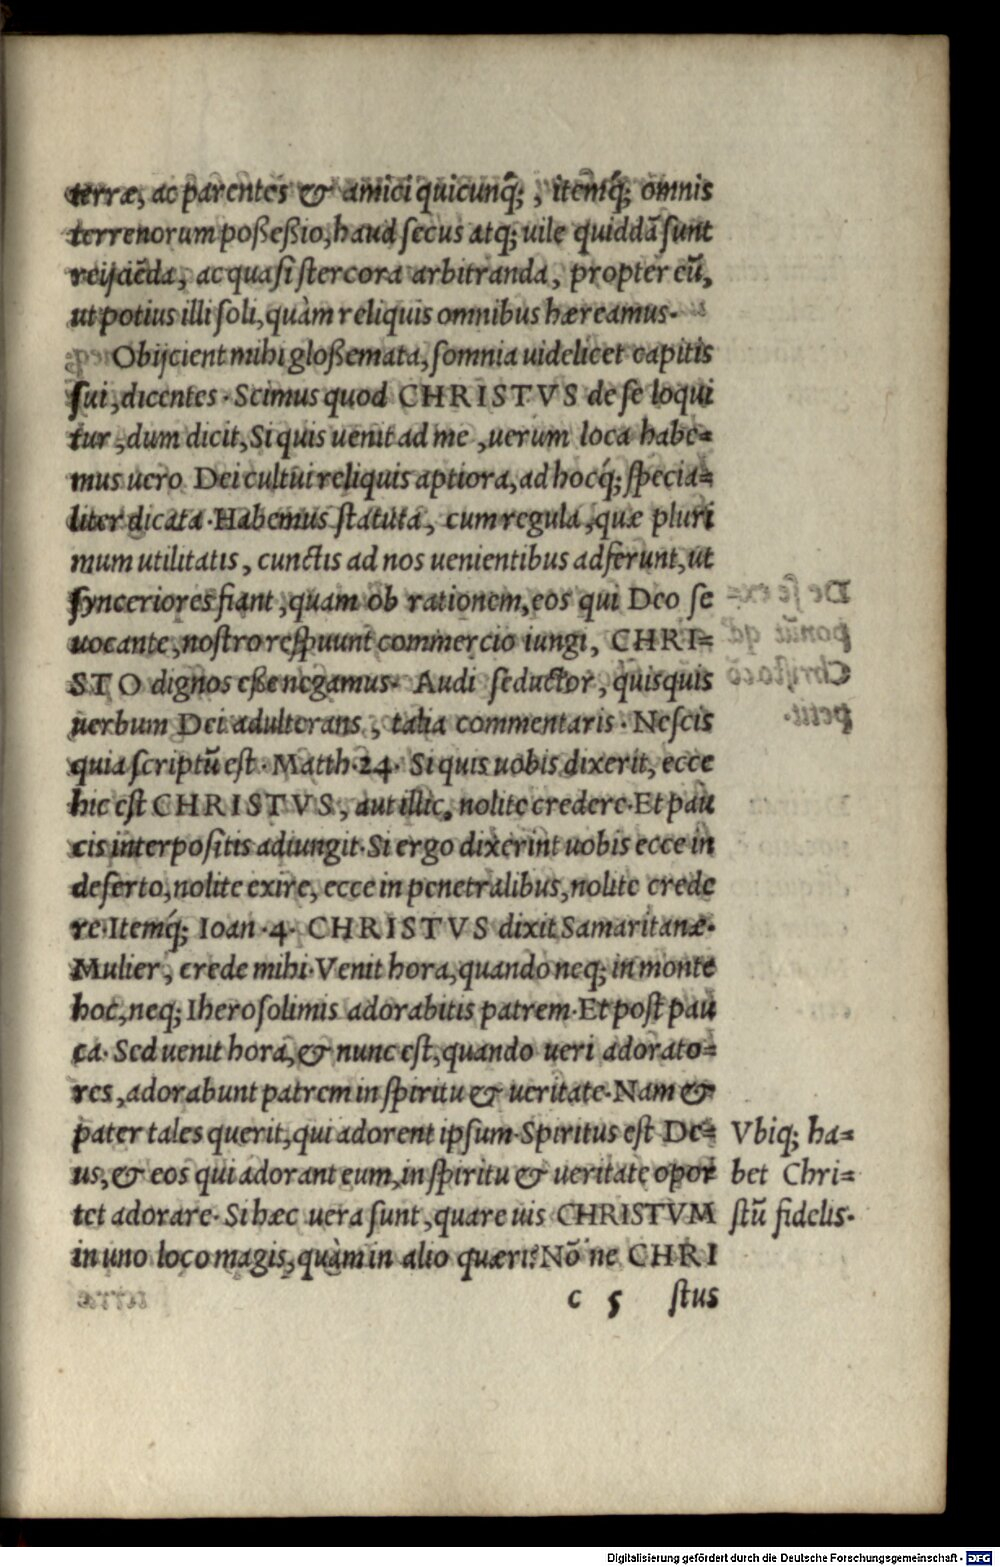 terræ, ac parentes & amici quicunq̃;, itemq́; omnis
terrenorum poßeßio, haud secus atq; uile quiddã sunt
reijciẽda, ac quasi stercora arbitranda, propter eũ,
ut potius illi soli, quàm reliquis omnibus hæreamus.
Obijcient mihi gloßemata, somnia uidelicet capitis
sui, dicentes. Scimus quod CHRISTVS de se loqui
tur, dum dicit, Si quis uenit ad me, uerum loca habe=
mus uero Dei cultui reliquis aptiora, ad hocq́; specia=
liter dicata. Habemus statuta, cum regula, quæ pluri
mum utilitatis, cunctis ad nos uenientibus adferunt, ut
synceriores fiant, quam ob rationem, eos qui Deo se
uocante, nostro respuunt commercio iungi, CHRI=
STO dignos eße negamus. Audi seductor, quisquis
uerbum Dei adulterans, talia commentaris. Nescis
quia scriptũ est. Matth. 24. Si quis uobis dixerit, ecce
hic est CHRISTVS, aut illic, nolite credere. Et pau
cis interpositis adiungit. Si ergo dixerint uobis ecce in
deserto, nolite exire, ecce in penetralibus, nolite crede
re. Itemq́; Ioan. 4. CHRISTVS dixit Samaritanæ.
Mulier, crede mihi. Venit hora, quando neq; in monte
hoc, neq; Iherosolimis adorabitis patrem. Et post pau
ca. Sed uenit hora, & nunc est, quando ueri adorato=
res, adorabunt patrem in spiritu & ueritate. Nam &
pater tales querit, qui adorent ipsum. Spiritus est De=
us, & eos qui adorant eum, in spiritu & ueritate opor
tet adorare. Si hæc uera sunt, quare uis CHRISTVM
in uno loco magis, quàm in alio quæri? Nõ ne CHRI
Vbiq; ha=
bet Chri=
stũ fidelis.
c 5 stus
Digitalisierung gefördert durch die Deutsche Forschungsgemeinschaft - DFG